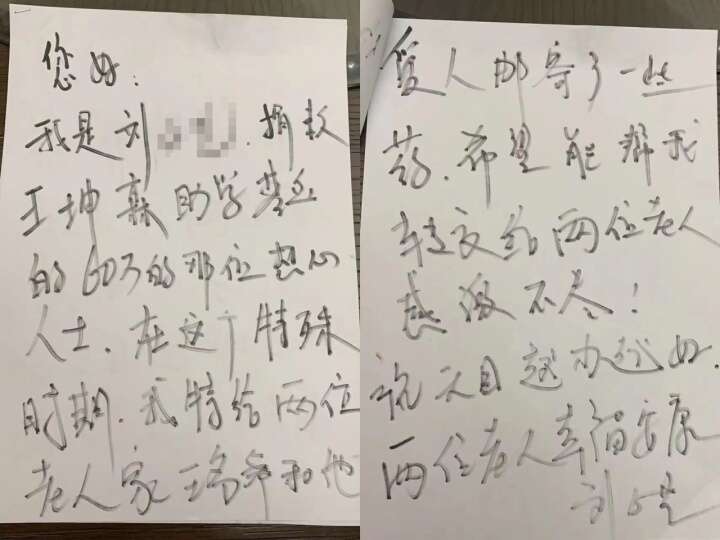 您好:
我是刘 捐款
王坤森助学基金
的60万的那位热心
人士. 在这个特殊
时期. 我特给两位
老人家 和他
爱人邮寄了一些
药. 希望能帮我
转交给两位老人
感激不尽!
祝天目越办越好.
两位老人幸福安康
刘